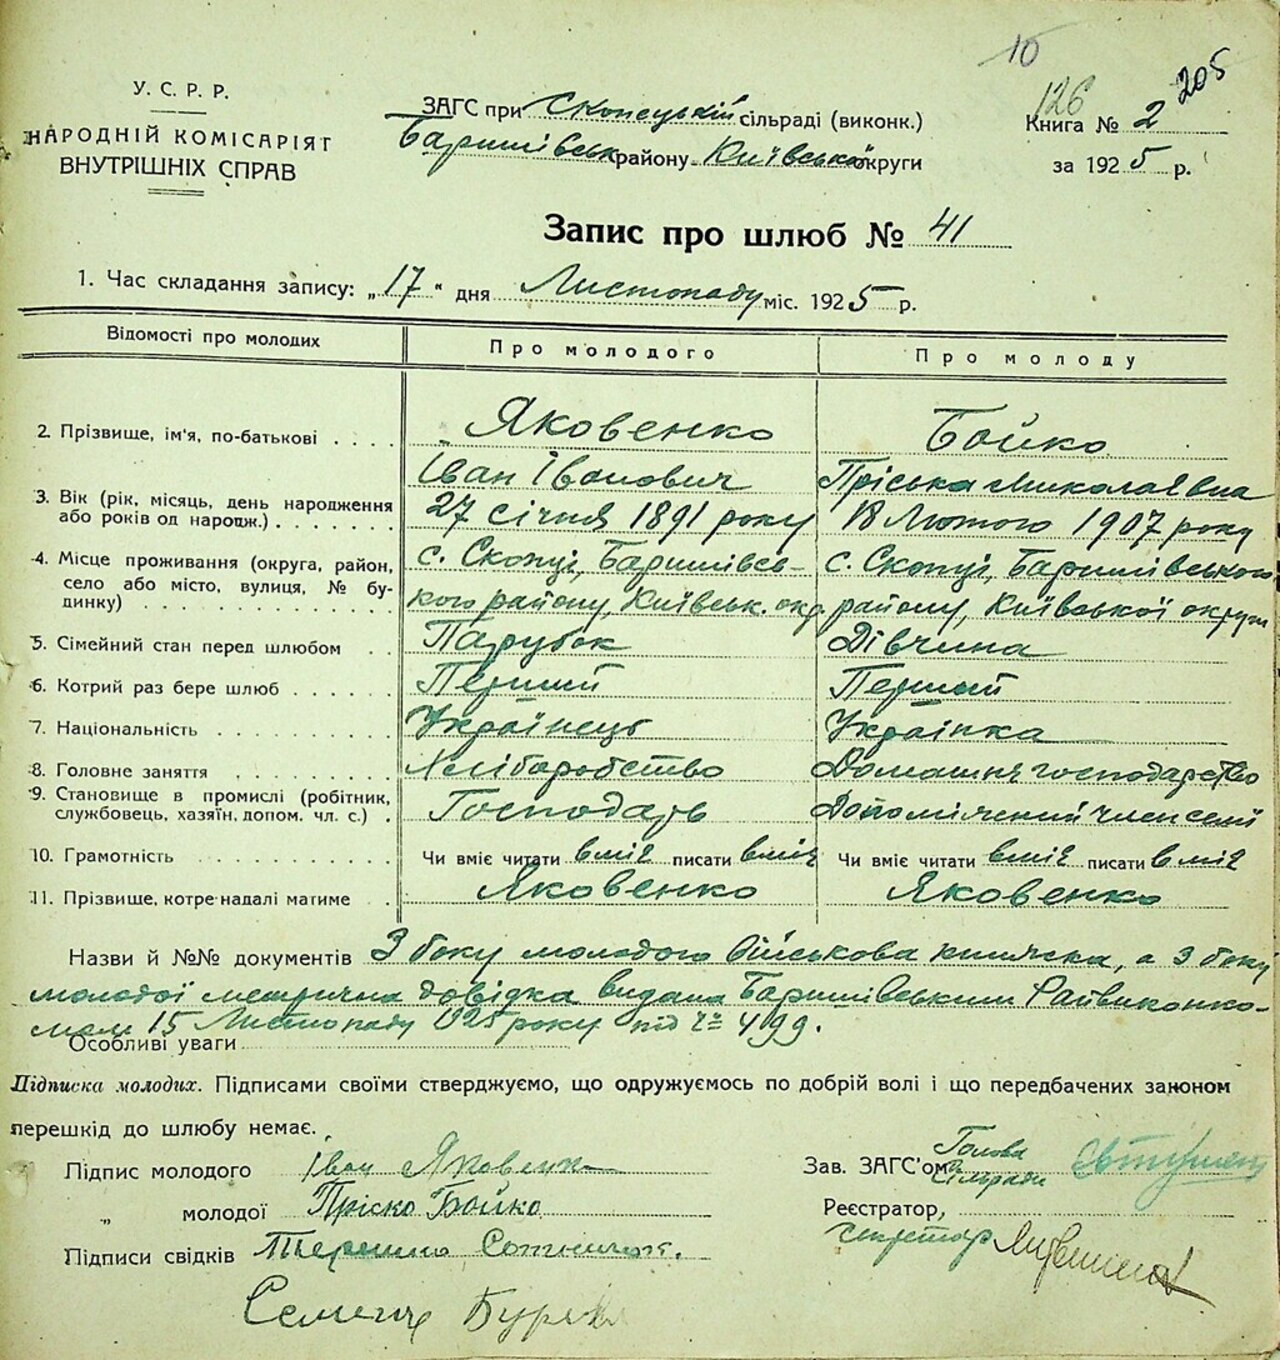 10
126
205
У. С. Р. Р.
НАРОДНІЙ КОМІСАРІЯТ
ВНУТРІШНІХ СПРАВ
ЗАГС при Скопецькій сільраді (виконк.)
Баришівськ району Київської округи
Книга № 2
за 1925 р.
Запис про шлюб № 41
1. Час складання запису: „17" дня Листопаду міс. 1925 р.
Відомості про молодих
Про молодого
Про молоду
2. Прізвище, ім'я, по-батькові
Яковенко
Іван Іванович
Бойко
Пріська Миколаївна
3. Вік (рік, місяць, день народження
або років од народж.)
27 січня 1891 року
18 Лютого 1907 року
4. Місце проживання (округа, район,
село або місто, вулиця, № бу-
динку)
с. Скопці, Баришівсь-
кого району, Київськ. окр.
с. Скопці, Баришівського
району, Київської округи
5. Сімейний стан перед шлюбом
Парубок
Дівчина
6. Котрий раз бере шлюб
Перший
Перший
7. Національність
Українець
Українка
8. Головне заняття
Хліборобство
Домашнє господарство
9. Становище в промислі (робітник,
службовець, хазяїн, допом. чл. с.)
Господарь
Допомічний член семї
10. Грамотність
Чи вміє читати вміє писати вміє
Чи вміє читати вміє писати вміє
11. Прізвище, котре надалі матиме
Яковенко
Яковенко
Назви й №№ документів З боку молодого військова книжка, а з боку
молодої метрична довідка видана Баришівським Райвиконко-
мом 15 Листопаду 1925 року під ч= 499.
Особливі уваги
Підписка молодих. Підписами своїми стверджуємо, що одружуємось по добрій волі і що передбачених законом
перешкід до шлюбу немає.
Підпис молодого Іван Яковенко
„ молодої Пріско Бойко
Підписи свідків
Семен
Зав. ЗАГС'ом Голова
сільради
Реєстратор,
секретар